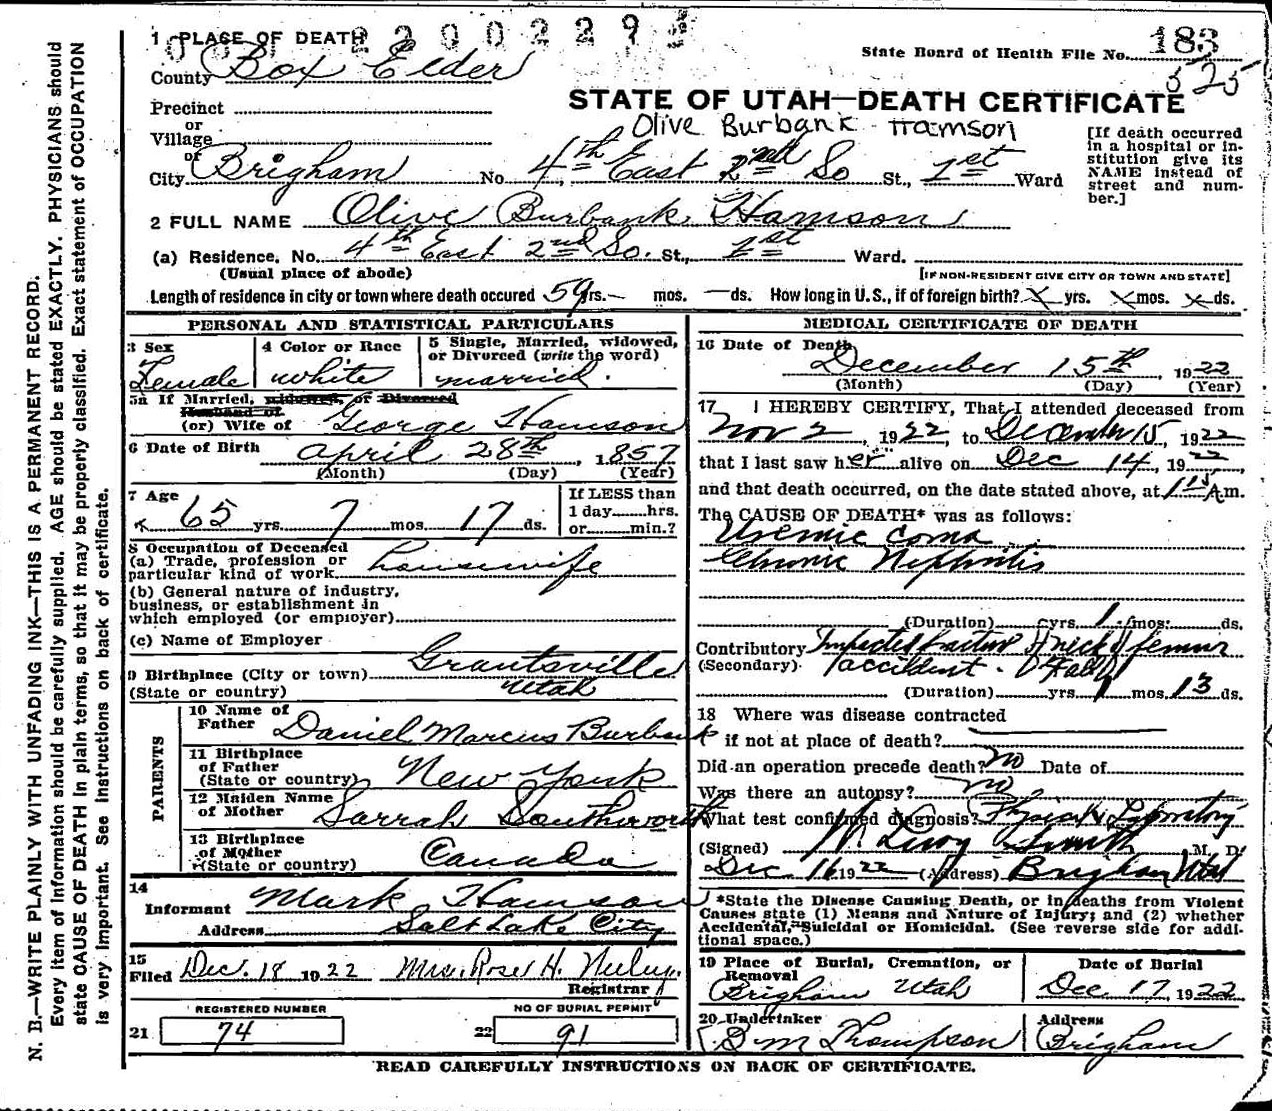 1 PLACE OF DEATH
2200229
State Board of Health File No. 183
525
County Box Elder
STATE OF UTAH—DEATH CERTIFICATE
Precinct
or
Village
or
Olive Burbank Hamson
[If death occurred in a hospital or in-stitution give its NAME instead of street and num-ber.]
City Brigham No. 4th East 2nd So St., 1st Ward
2 FULL NAME Olive Burbank Hamson
(a) Residence. No. 4th East 2nd So. St., 1st Ward.
(Usual place of abode) [IF NON-RESIDENT GIVE CITY OR TOWN AND STATE]
Length of residence in city or town where death occured 59 yrs.— mos. —ds. How long in U.S., if of foreign birth? X yrs. X mos. X ds.
PERSONAL AND STATISTICAL PARTICULARS
3 Sex Female
4 Color or Race white
5 Single, Married, widowed, or Divorced (write the word) married.
5a If Married, widowed, or Divorced
Husband of
(or) Wife of George Hamson
6 Date of Birth April 28th, 1857
(Month) (Day) (Year)
7 Age 65 yrs. 7 mos. 17 ds.
If LESS than
1 day......hrs.
or......min.?
8 Occupation of Deceased
(a) Trade, profession or
particular kind of work housewife
(b) General nature of industry,
business, or establishment in
which employed (or employer)
(c) Name of Employer
9 Birthplace (City or town) Grantsville
(State or country) Utah
PARENTS
10 Name of
Father Daniel Marcus Burbank
11 Birthplace
of Father
(State or country) New York
12 Maiden Name
of Mother Sarrah Southworth
13 Birthplace
of Mother
(State or country) Canada
14
Informant Mark Hamson
Address Salt Lake City
15
Filed Dec. 18 1922 Mrs. Rose H.
Registrar
REGISTERED NUMBER NO OF BURIAL PERMIT
21 74 22 91
MEDICAL CERTIFICATE OF DEATH
16 Date of Death
December 15th, 1922
(Month) (Day) (Year)
17 I HEREBY CERTIFY, That I attended deceased from
Nov 2, 1922, to December 15, 1922
that I last saw her alive on Dec 14, 1922,
and that death occurred, on the date stated above, at 1 15 A.m.
The CAUSE OF DEATH* was as follows:
Uremic coma
Chronic Nephritis
(Duration) yrs. 1 mos. ds.
Contributory Impacted fracture of neck of femur
(Secondary) accident - Fall
(Duration) yrs 1 mos. 13 ds.
18 Where was disease contracted
if not at place of death?
Did an operation precede death? no Date of
Was there an autopsy? no
What test confirmed diagnosis? Physical & Laboratory
(Signed) W. Leroy Smith M. D.
Dec 16 1922 (Address) Brigham Utah
*State the Disease Causing Death, or in deaths from Violent
Causes state (1) Means and Nature of Injury; and (2) whether
Accidental, Suicidal or Homicidal. (See reverse side for addi-
tional space.)
19 Place of Burial, Cremation, or Removal
Brigham Utah
Date of Burial
Dec 17, 1922
20 Undertaker
B. M Thompson
Address
Brigham
READ CAREFULLY INSTRUCTIONS ON BACK OF CERTIFICATE.
N. B.—WRITE PLAINLY WITH UNFADING INK—THIS IS A PERMANENT RECORD.
Every item of information should be carefully supplied. AGE should be stated EXACTLY. PHYSICIANS should
state CAUSE OF DEATH in plain terms, so that it may be properly classified. Exact statement of OCCUPATION
is very important. See instructions on back of certificate.